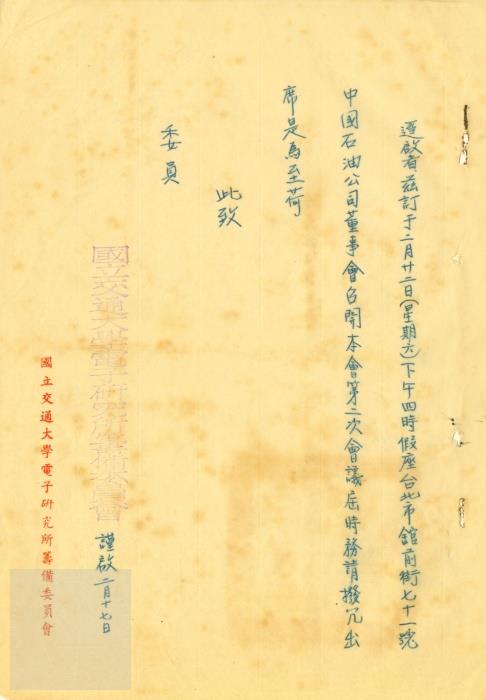 逕啟者茲訂于二月廿二日(星期六)下午四時假座台北市館前街七十一號
中國石油公司董事會召開本會第二次會議屆時務請撥冗出
席是為至荷
此致
委員
國立交通大學電子研究所籌備委員會
謹啟 二月十七日
國立交通大學電子研究所籌備委員會